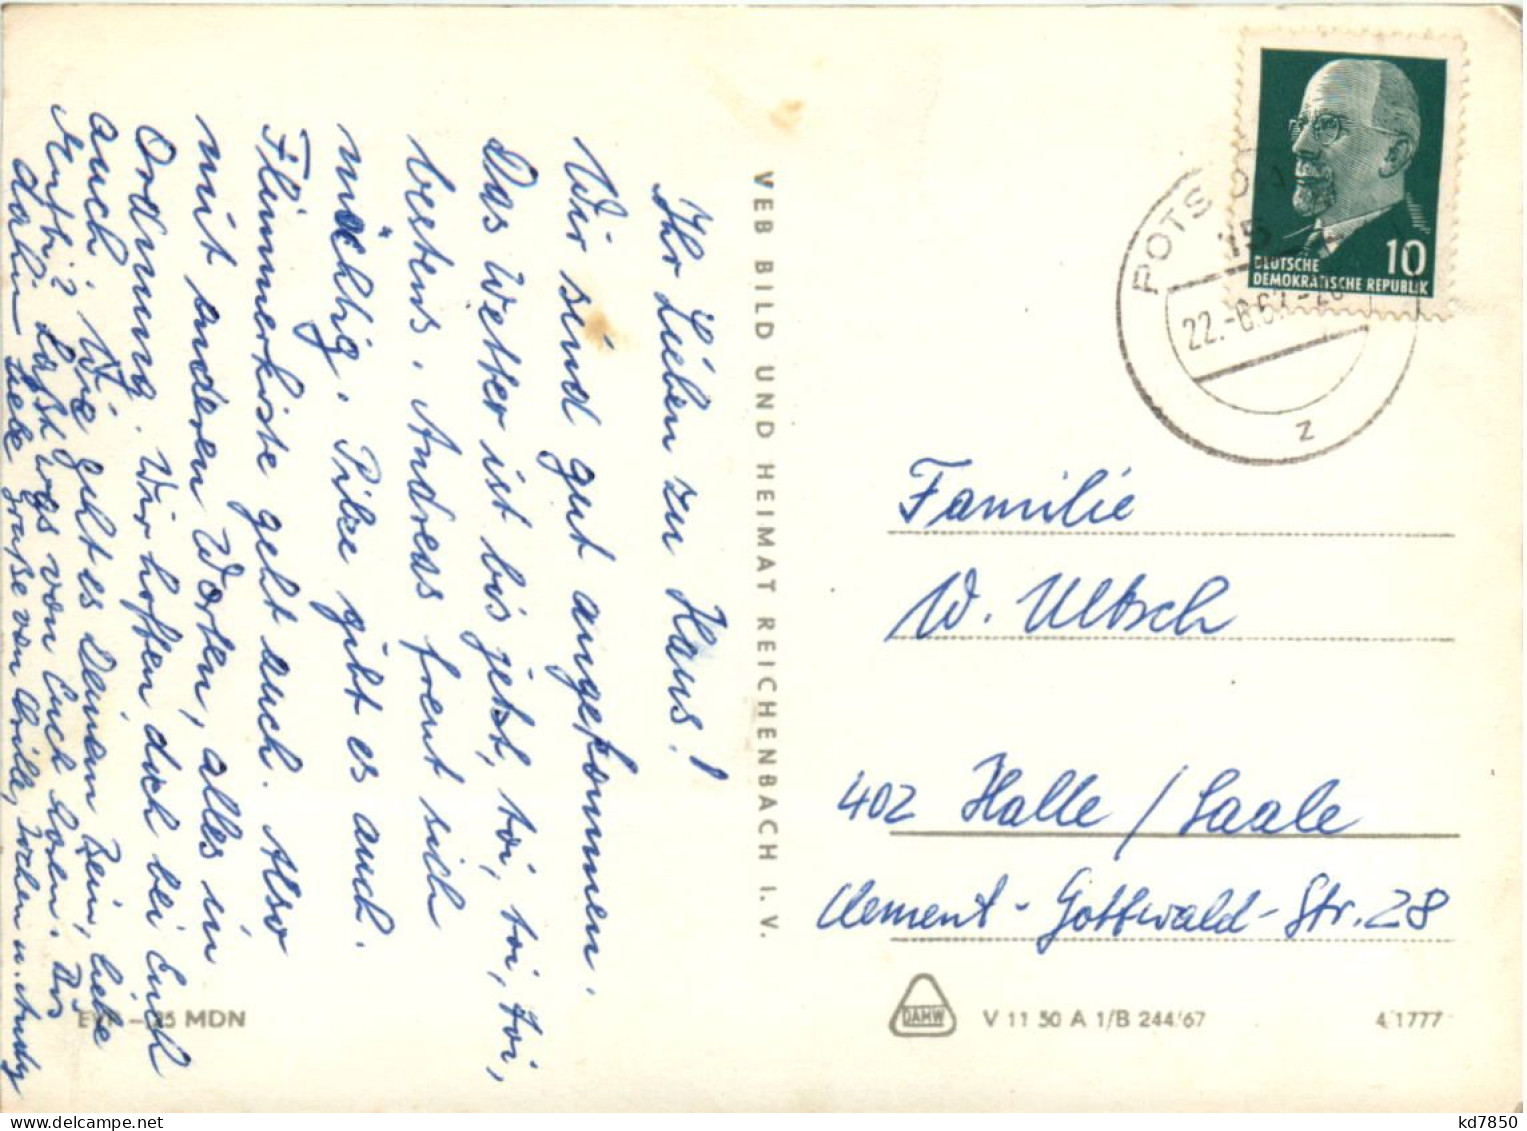 Ihr Lieben zu Haus!
Wir sind gut angekommen.
Das Wetter ist bis jetzt, toi, toi, toi,
bestens. Andreas freut sich
mächtig. Pilze gibt es auch.
Flimmerkiste geht auch. Also
mit anderen Worten, alles in
Ordnung. Wir hoffen doch bei Euch
auch. Wie geht es Deinem Bein, liebe
Mutti? Laßt was von Euch hören. Bis
dahin liebe Grüße von Brille, Jochen u. Andy
VEB BILD UND HEIMAT REICHENBACH I. V.
EVP – 25 MDN
10
DEUTSCHE
DEMOKRATISCHE REPUBLIK
POTSDAM
15
22.-6.67.-20
z
Familie
W. Ultsch
402 Halle / Saale
Clement-Gottwald-Str. 28
DAHW
V 11 50 A 1/B 244/67
4/1777
kd7850